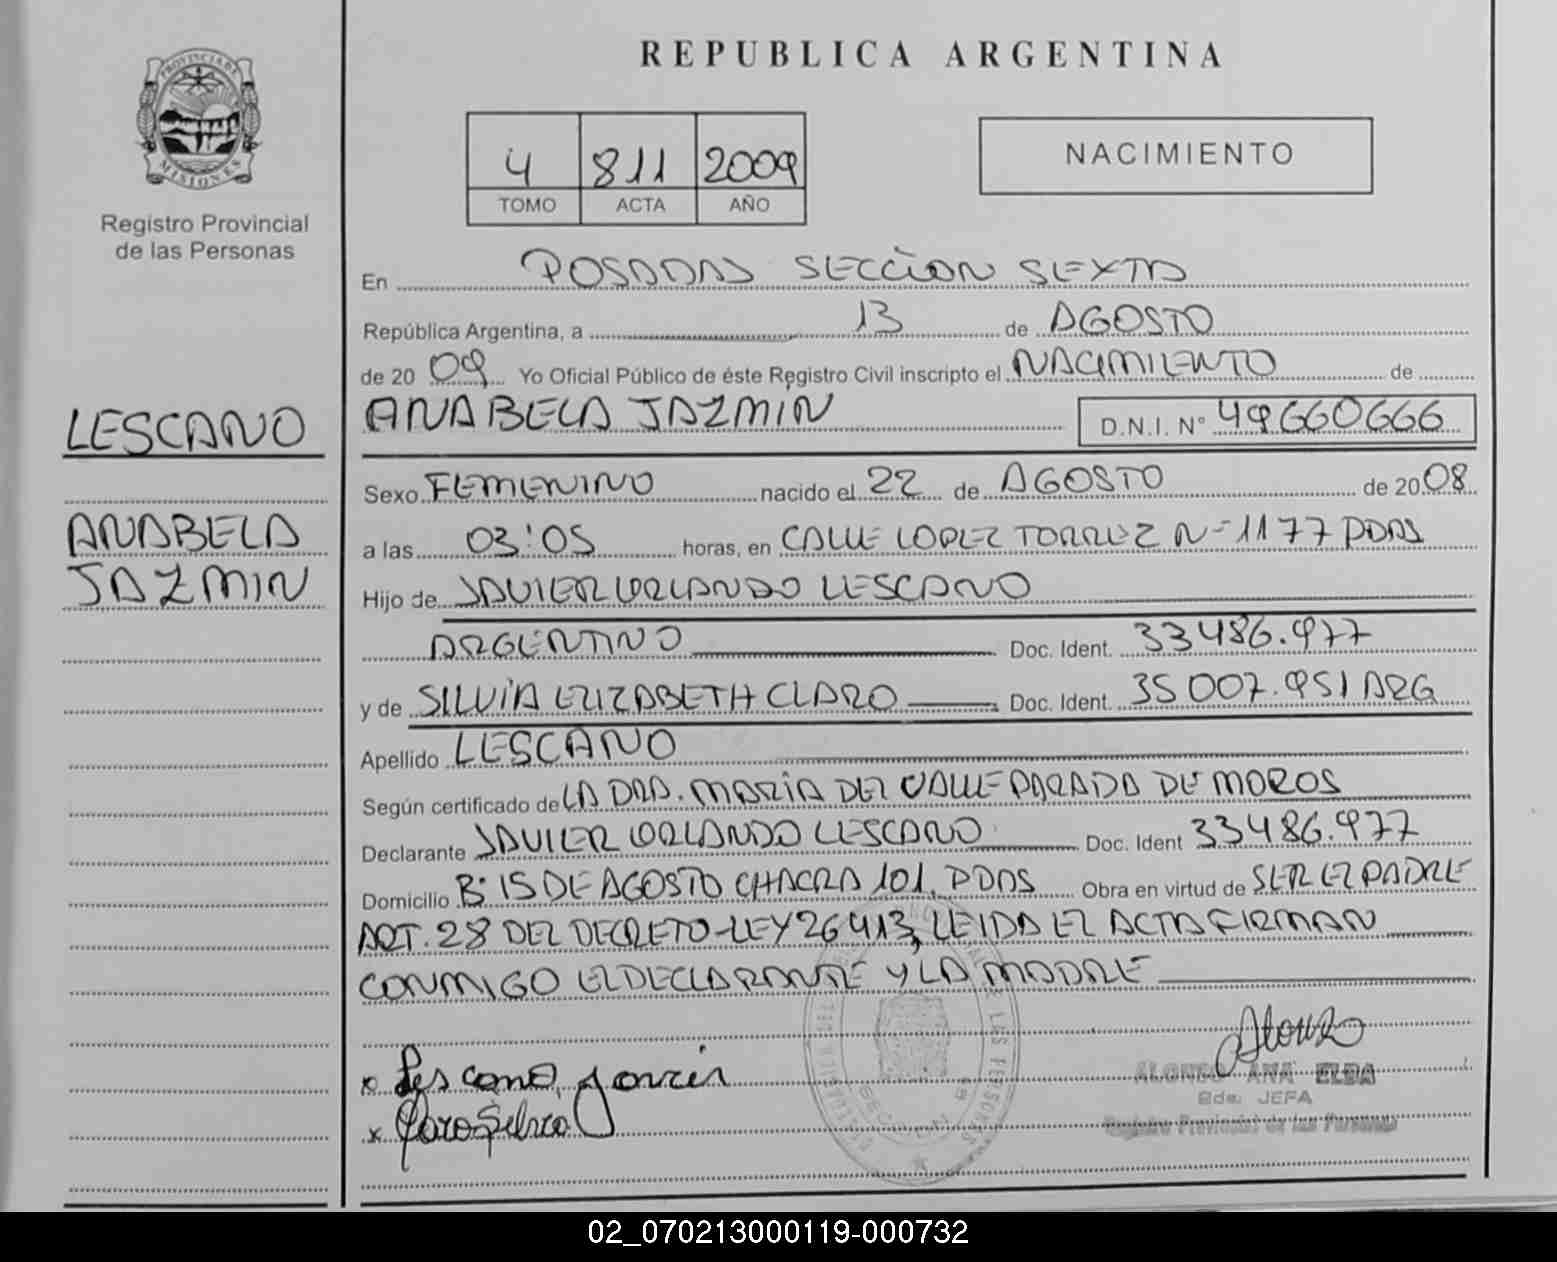 PROVINCIA DE
MISIONES
Registro Provincial
de las Personas
LESCANO
ANABELA
JAZMIN
REPUBLICA ARGENTINA
4 811 2009
TOMO ACTA AÑO
NACIMIENTO
En POSADAS SECCION SEXTA
República Argentina, a 13 de AGOSTO
de 20 09 Yo Oficial Público de éste Registro Civil inscripto el NACIMIENTO de
ANABELA JAZMIN D.N.I. N° 49660666
Sexo FEMENINO nacido el 22 de AGOSTO de 20 08
a las 03:05 horas, en CALLE LOPEZ TORREZ N=1177 PDAS
Hijo de JAVIER ORLANDO LESCANO
ARGENTINO Doc. Ident. 33486.977
y de SILVIA ELIZABETH CLARO Doc. Ident. 35007.951 ARG
Apellido LESCANO
Según certificado de LA DRA. MARIA DEL VALLE PARADA DE MOROS
Declarante JAVIER ORLANDO LESCANO Doc. Ident 33486.977
Domicilio B° 15 DE AGOSTO CHACRA 101, PDAS Obra en virtud de SER EL PADRE
ART. 28 DEL DECRETO-LEY 26413, LEIDA EL ACTA FIRMAN
CONMIGO EL DECLARANTE Y LA MADRE
Alonzo
x Lescano Javier
ALONSO ANA ELBA
x Claro Silvia
JEFA
Registro Provincial de las Personas
02_070213000119-000732